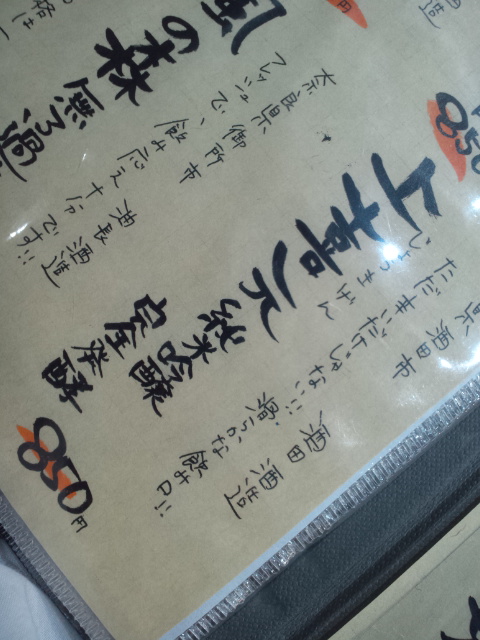 850
県 酒田市
酒田酒造
上喜元
じょうきげん
ただ辛いだけじゃない!!
滑らかな飲み口!!
純米吟醸
完全発酵
850円
奈良県 御所市
油長酒造
風の森
フレッシュで、飲み応え十分です!!
無ろ過
円
造